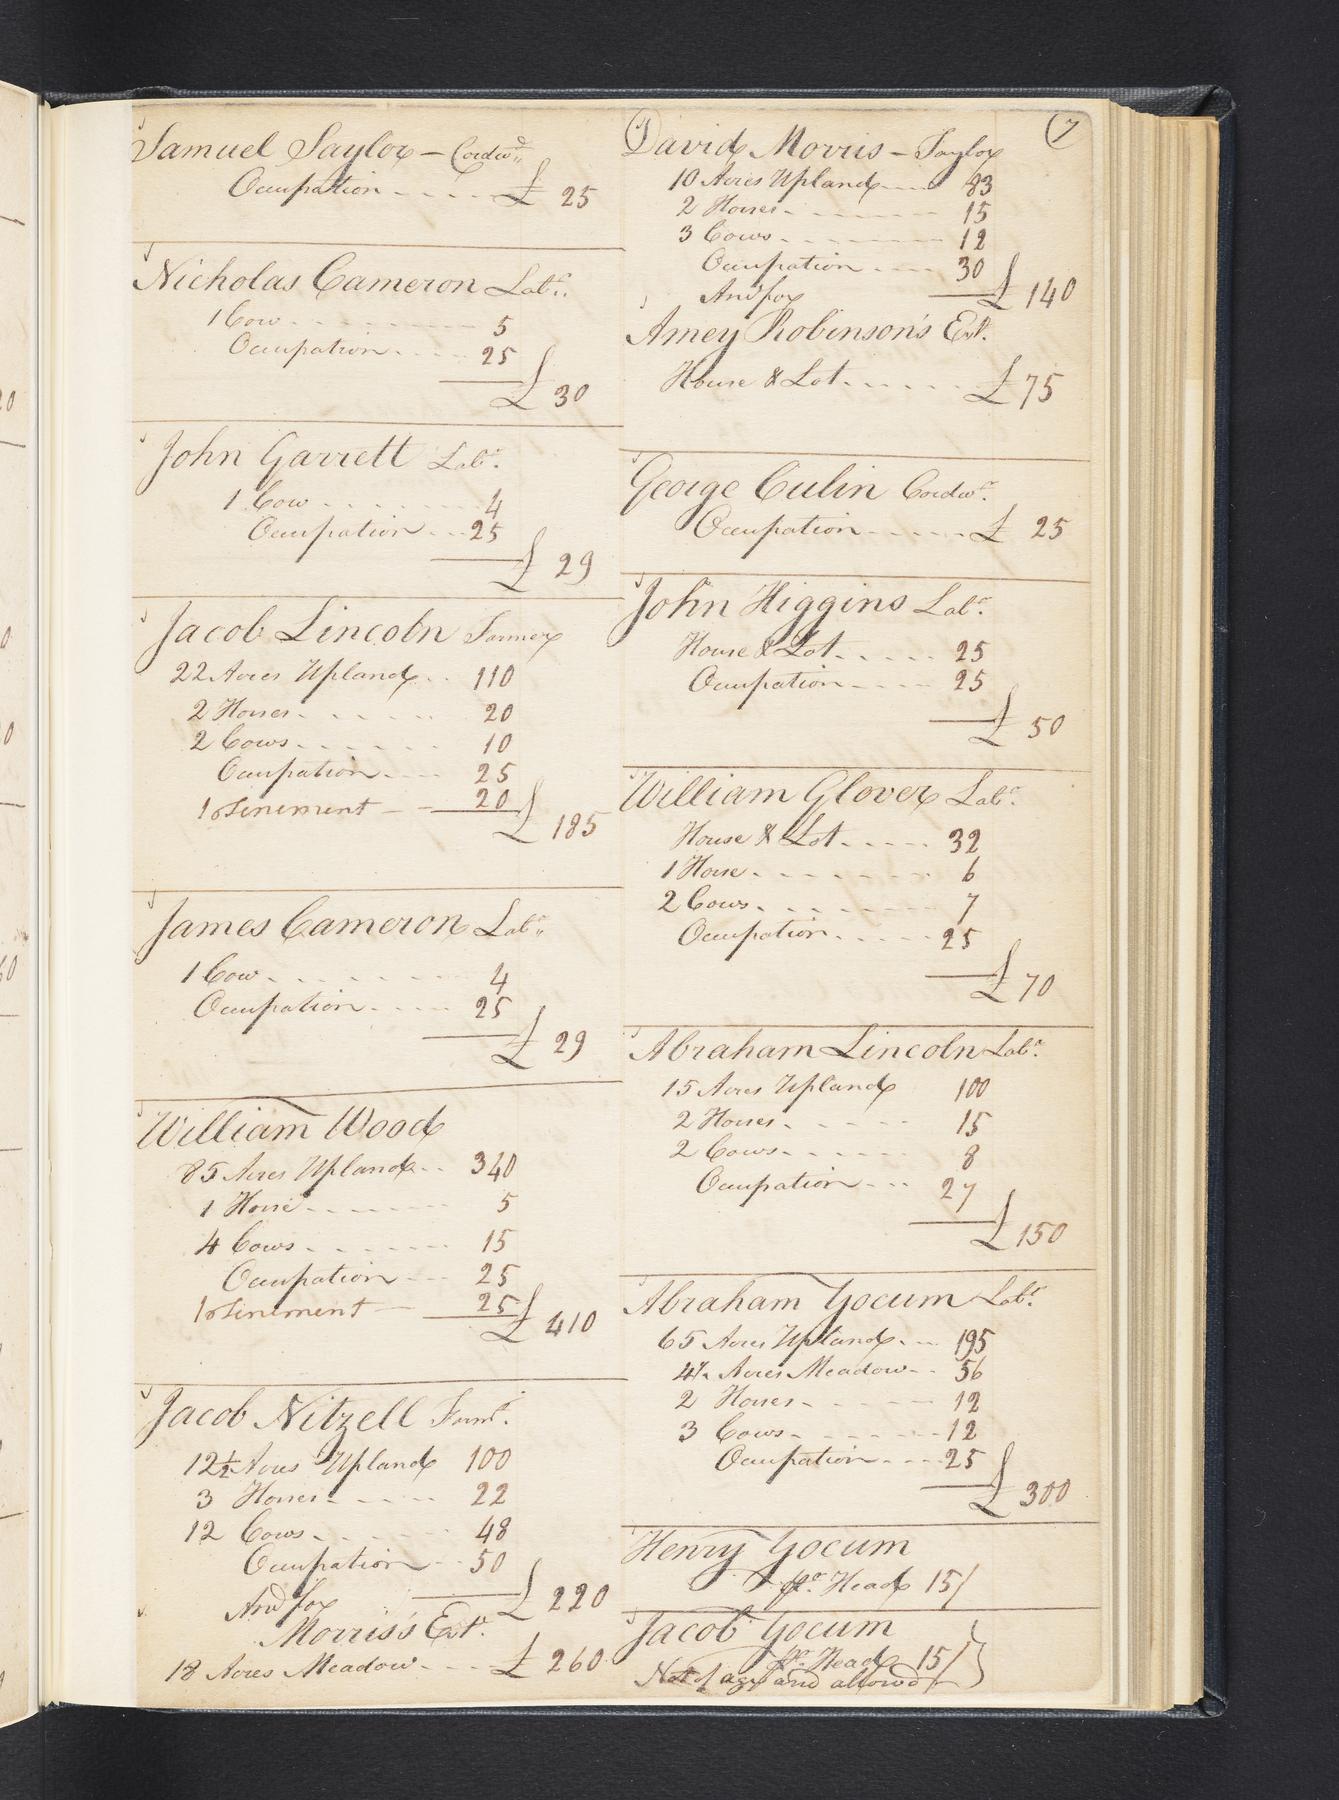 Samuel Saylor - Cordwr.
Occupation £ 25
Nicholas Cameron Labr.
1 Cow 5
Occupation 25
£ 30
John Garrett Labr.
1 Cow 4
Occupation 25
£ 29
Jacob Lincoln Farmer
22 Acres Upland 110
2 Horses 20
2 Cows 10
Occupation 25
1 Tiniment 20
£ 185
James Cameron Labr.
1 Cow 4
Occupation 25
£ 29
William Wood
85 Acres Upland 340
1 Horse 5
4 Cows 15
Occupation 25
1 Tiniment 25
£ 410
Jacob Nitzell Farmr.
12½ Acres Upland 100
3 Horses 22
12 Cows 48
Occupation 50
£ 220
And for
Morris's Est.
18 Acres Meadow £ 260
7
David Morris - Taylor
10 Acres Upland 83
2 Horses 15
3 Cows 12
Occupation 30
£ 140
And for
Amey Robinson's Est.
House & Lot £ 75
George Culin Cordwr.
Occupation £ 25
John Higgins Labr.
House & Lot 25
Occupation 25
£ 50
William Glover Labr.
House & Lot 32
1 Horse 6
2 Cows 7
Occupation 25
£ 70
Abraham Lincoln Labr.
15 Acres Upland 100
2 Horses 15
2 Cows 8
Occupation 27
£ 150
Abraham Yocum Labr.
65 Acres Upland 195
Acres Meadow 56
2 Horses 12
3 Cows 12
Occupation 25
£ 300
Henry Yocum
pr. Head 15/
Jacob Yocum
pr. Head 15/
Not of age and allowd